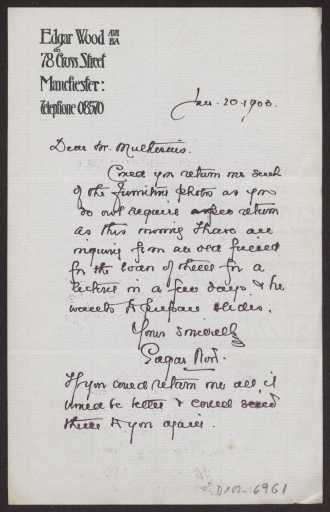 Edgar Wood ARIBA
78 Cross Street
Manchester:
Telephone 08570
Jan. 20. 1903.
Dear Mr.
Could you return me such
of the furniture photos as you
do not require return
as this morning I have an
inquiry from an old friend
for the loan of these for a
lecture in a few days & he
wants to prepare slides.
Yours sincerely
Edgar Wood.
If you could return me all, it
would be better & could send
these to you again.
6961